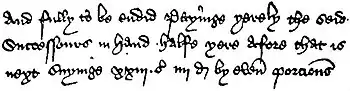 And fully to be endid Payinge yerely the seid
Successours in hand halfe yere afore that is
next suyinge xxiii s iiii d by even porcions